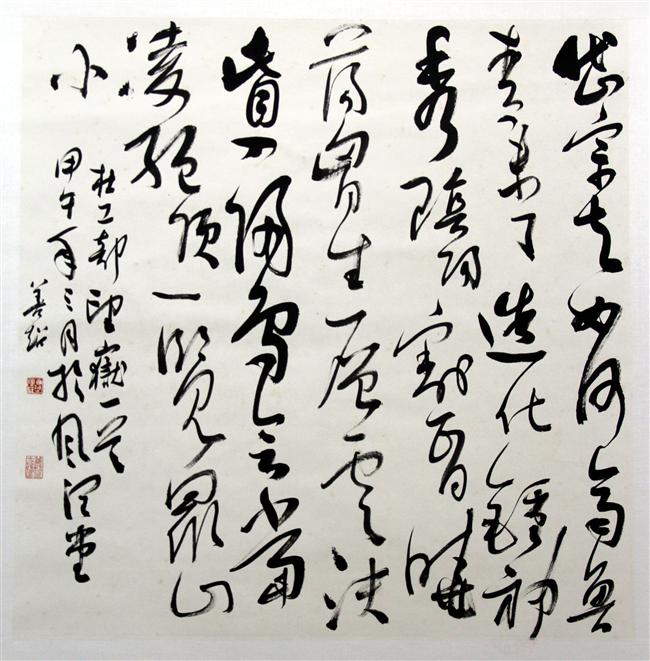 岱宗夫如何齊魯
青未了造化鍾神
秀陰陽割昏曉
蕩胸生層雲決
眥入歸鳥會當
凌絕頂一覽眾山
小
杜工部望嶽一首
甲午年三月於風堂
善